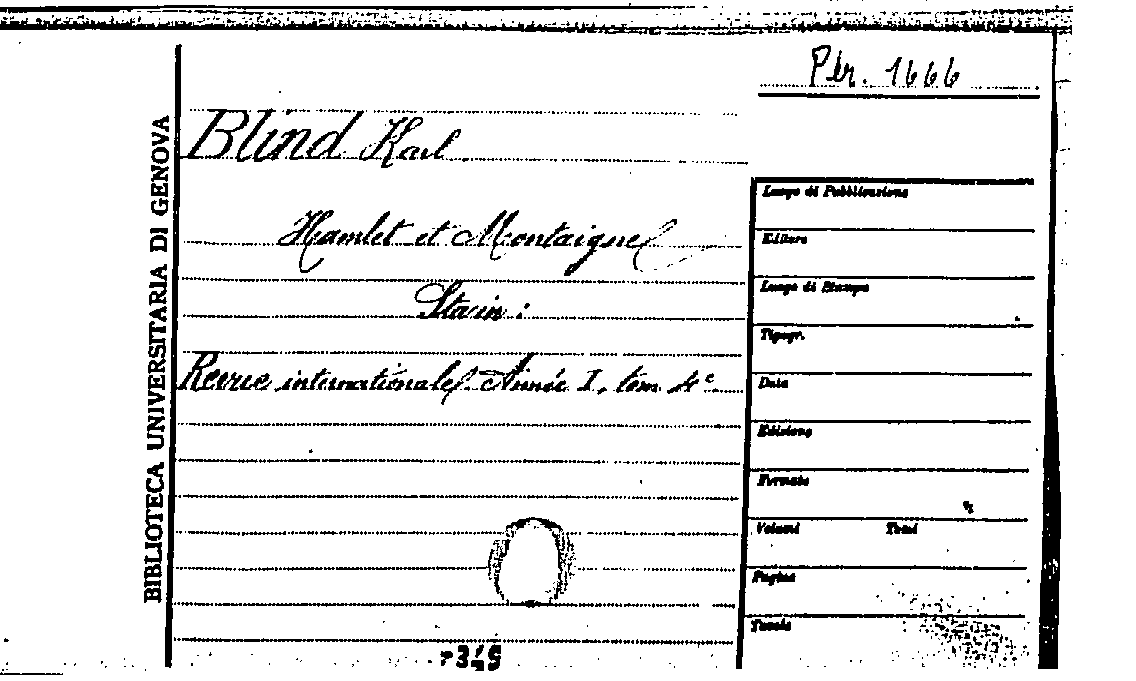 Per. 1666
Blind Karl
Hamlet et Montaigne
Sta in :
Revue internationale Année I, tom 4º
BIBLIOTECA UNIVERSITARIA DI GENOVA
Luogo di Pubblicazione
Editore
Luogo di Stampa
Tipogr.
Data
Edizione
Formato
Volumi Tomi
Pagine
Tavole